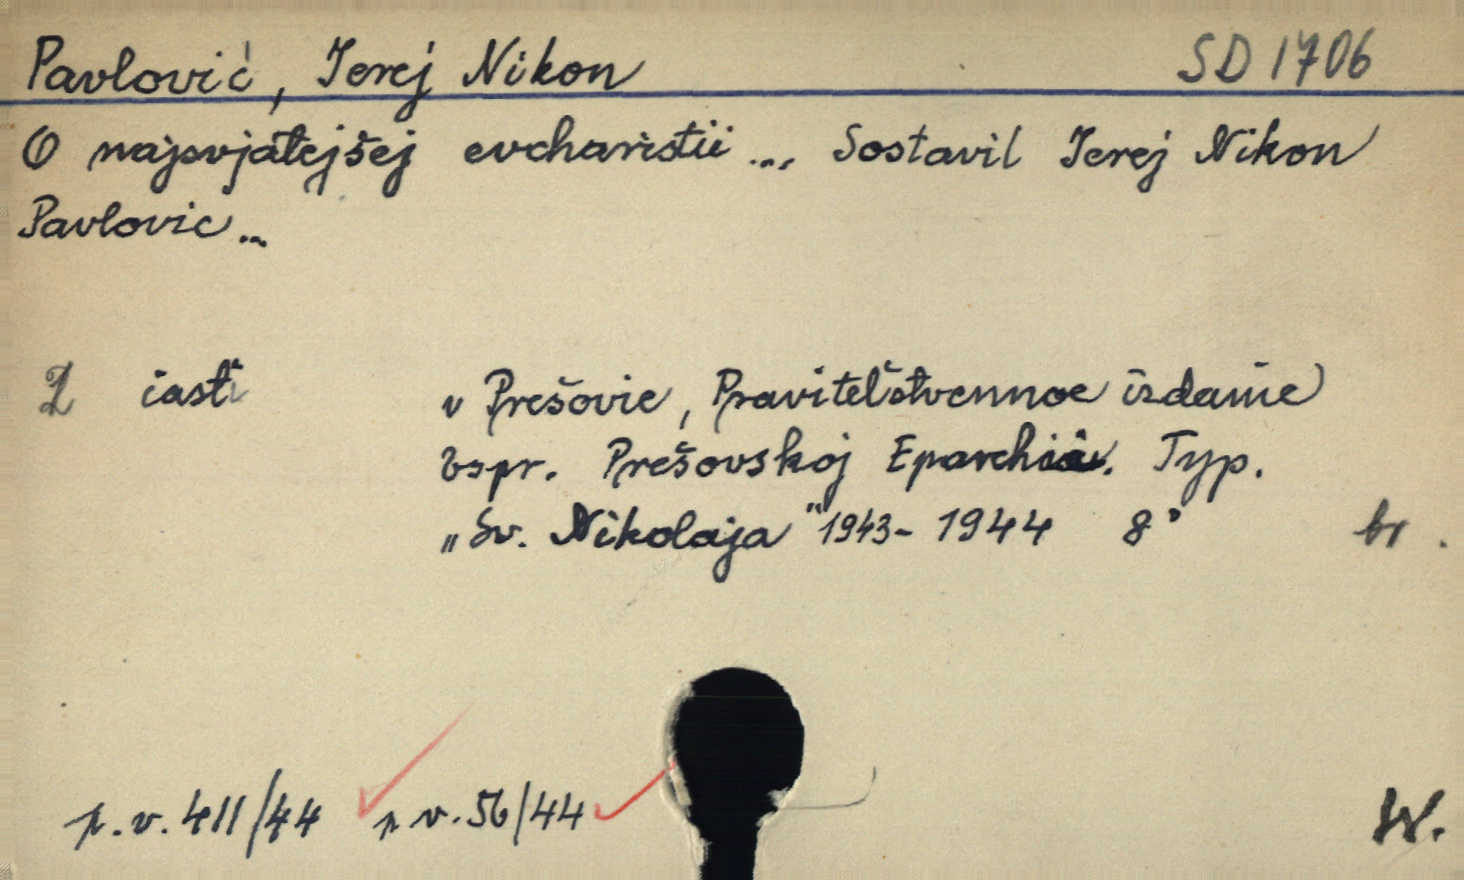 Pavlović, Ierej Nikon SD 1706
O najsvjatejšej evcharistii ... Sostavil Ierej Nikon
Pavlovic ...
2 časti v Prešovie, Pravitel'stvennoe izdanie
vspr. Prešovskoj Eparchii. Typ.
„Sv. Nikolaja" 1943-1944 8° br.
p.v. 411/44 p.v. 56/44 W.